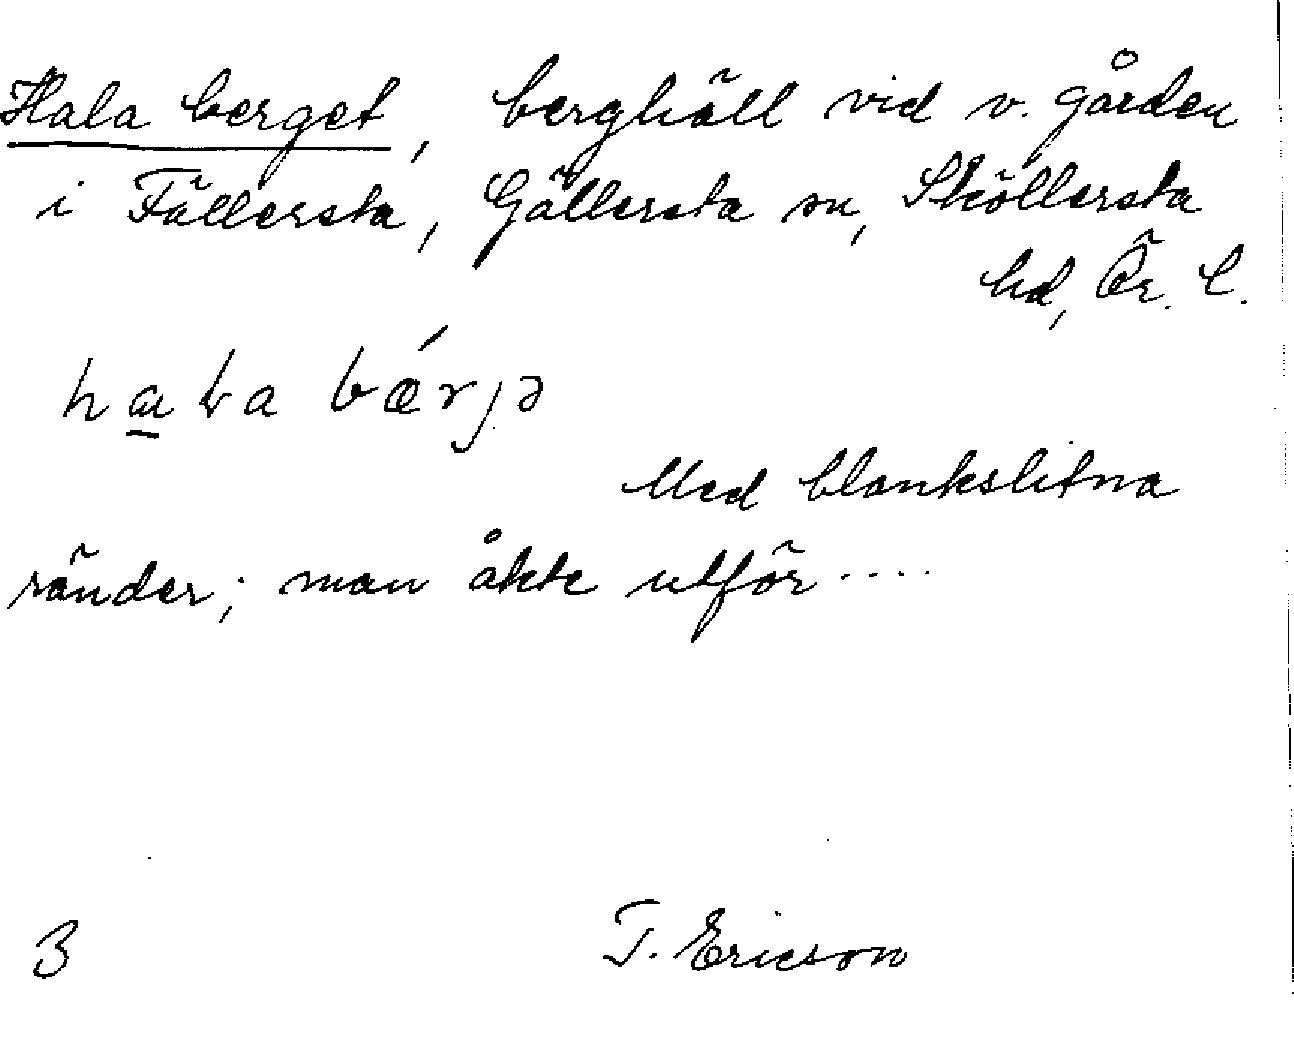 Hala berget, berghäll vid v. gården
i Fällersta, Gällersta sn, Sköllersta
hd, Ör. l.
Med blankslitna
ränder; man åkte utför ....
3 T. Ericson